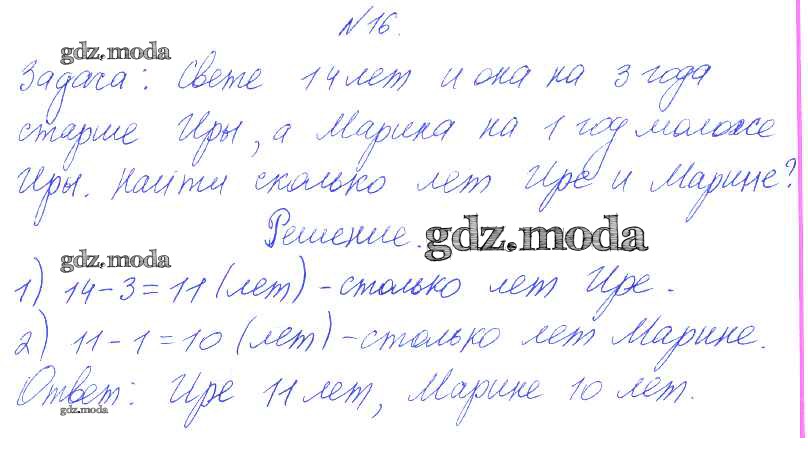 №16.
gdz.moda
Задача: Свете 14 лет и она на 3 года
старше Иры, а Марина на 1 год моложе
Иры. Найти сколько лет Ире и Марине?
Решение. gdz.moda
gdz.moda
1) 14-3=11 (лет) - столько лет Ире.
2) 11-1=10 (лет) - столько лет Марине.
Ответ: Ире 11 лет, Марине 10 лет.
gdz.moda